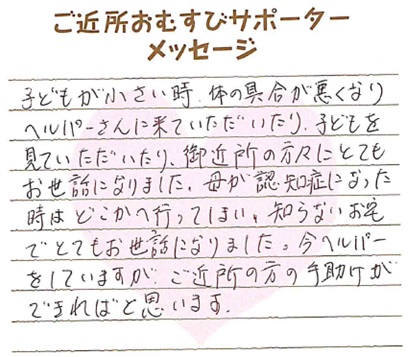 ご近所おむすびサポーター
メッセージ
子どもが小さい時、体の具合が悪くなり
ヘルパーさんに来ていただいたり、子どもを
見ていただいたり、御近所の方々にとても
お世話になりました。母が認知症になった
時はどこかへ行ってしまい、知らないお宅
でとてもお世話になりました。今ヘルパー
をしていますが、ご近所の方の手助けが
できればと思います。